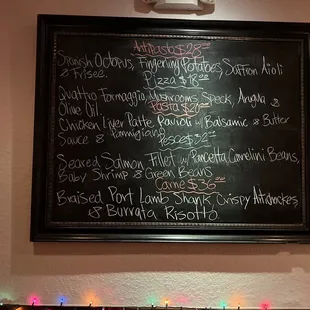 Antipasto $28.00
Spanish Octopus, Fingerling Potatoes, Saffron Aioli
& Frisee.
Pizza $18.00
Quattro Formaggio, Mushrooms, Speck, Arugua &
Olive Oil
Pasta $26.00
Chicken Liver Patte Ravioli w/ Balsamic & Butter
Sauce & Parmigiano
Pesce $32.00
Seared Salmon Fillet w/ Pancetta, Cannelini Beans,
Baby Shrimp & Green Beans
Carne $36.00
Braised Port Lamb Shank, Crispy Artichokes,
& Burrata Risotto.